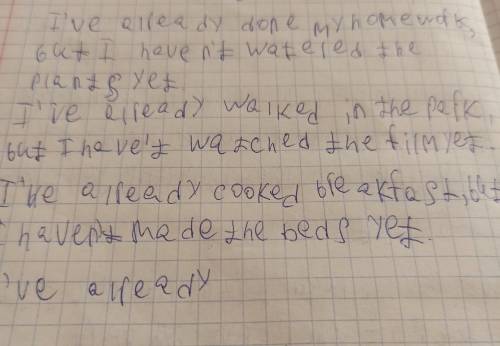 I've already done my homewok,
but I haven't watered the
plants yet
I've already walked in the park,
but I have't watched the film yet.
I've already cooked breakfast, but
I haven't made the beds yet.
I've already